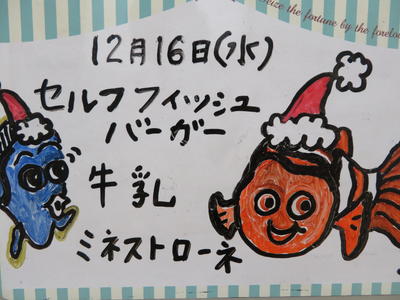 Seize the fortune by the forelo
12月16日(水)
セルフフィッシュ
バーガー
牛乳
ミネストローネ